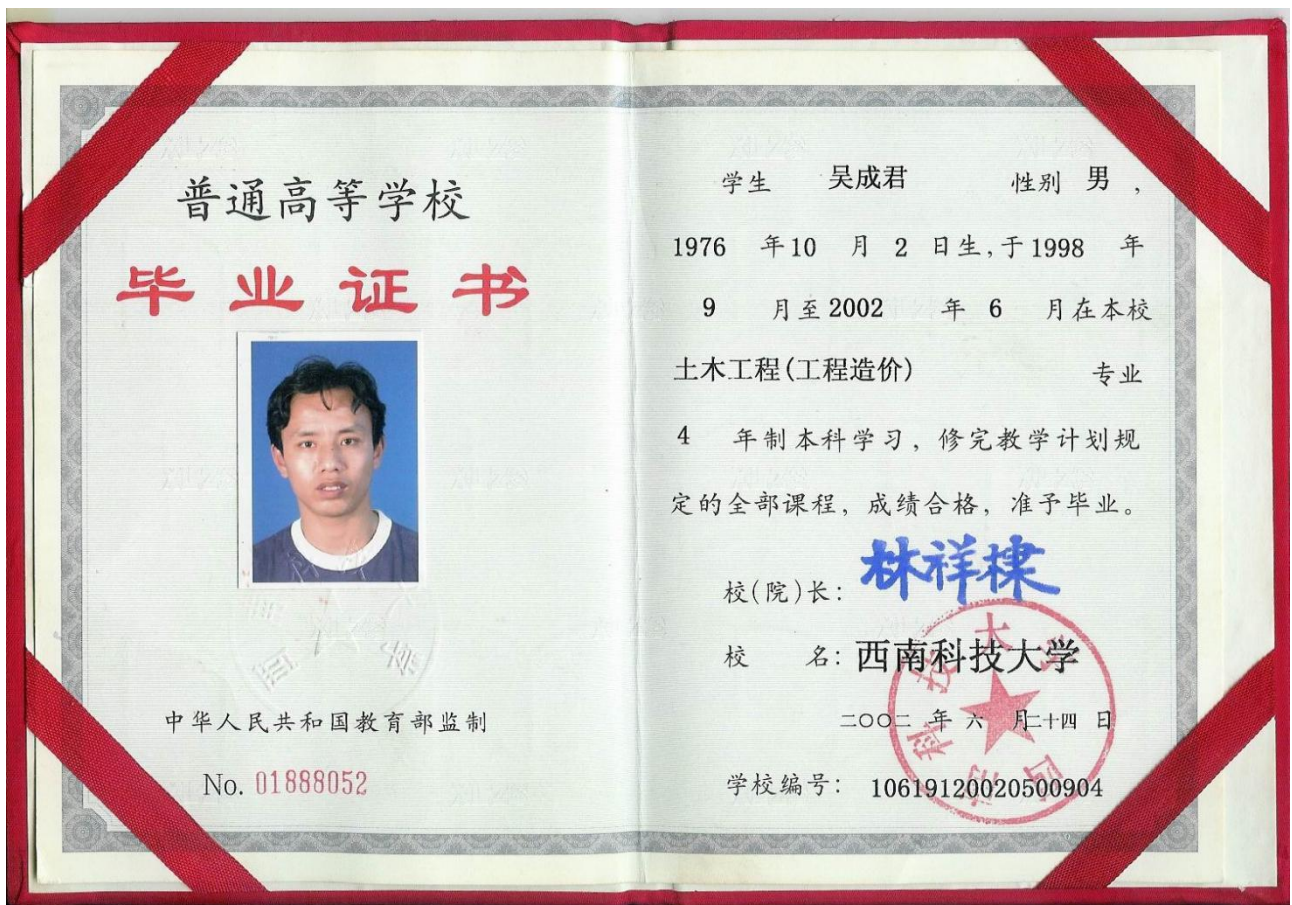 普通高等学校
毕业证书
中华人民共和国教育部监制
No. 01888052
学生 吴成君 性别 男，
1976 年10 月 2 日生，于1998 年
9 月至2002 年 6 月在本校
土木工程(工程造价) 专业
4 年制本科学习，修完教学计划规
定的全部课程，成绩合格，准予毕业。
校(院)长：林祥棣
校 名：西南科技大学
二〇〇二 年 六 月二十四 日
学校编号：10619120020500904
西南科技大学